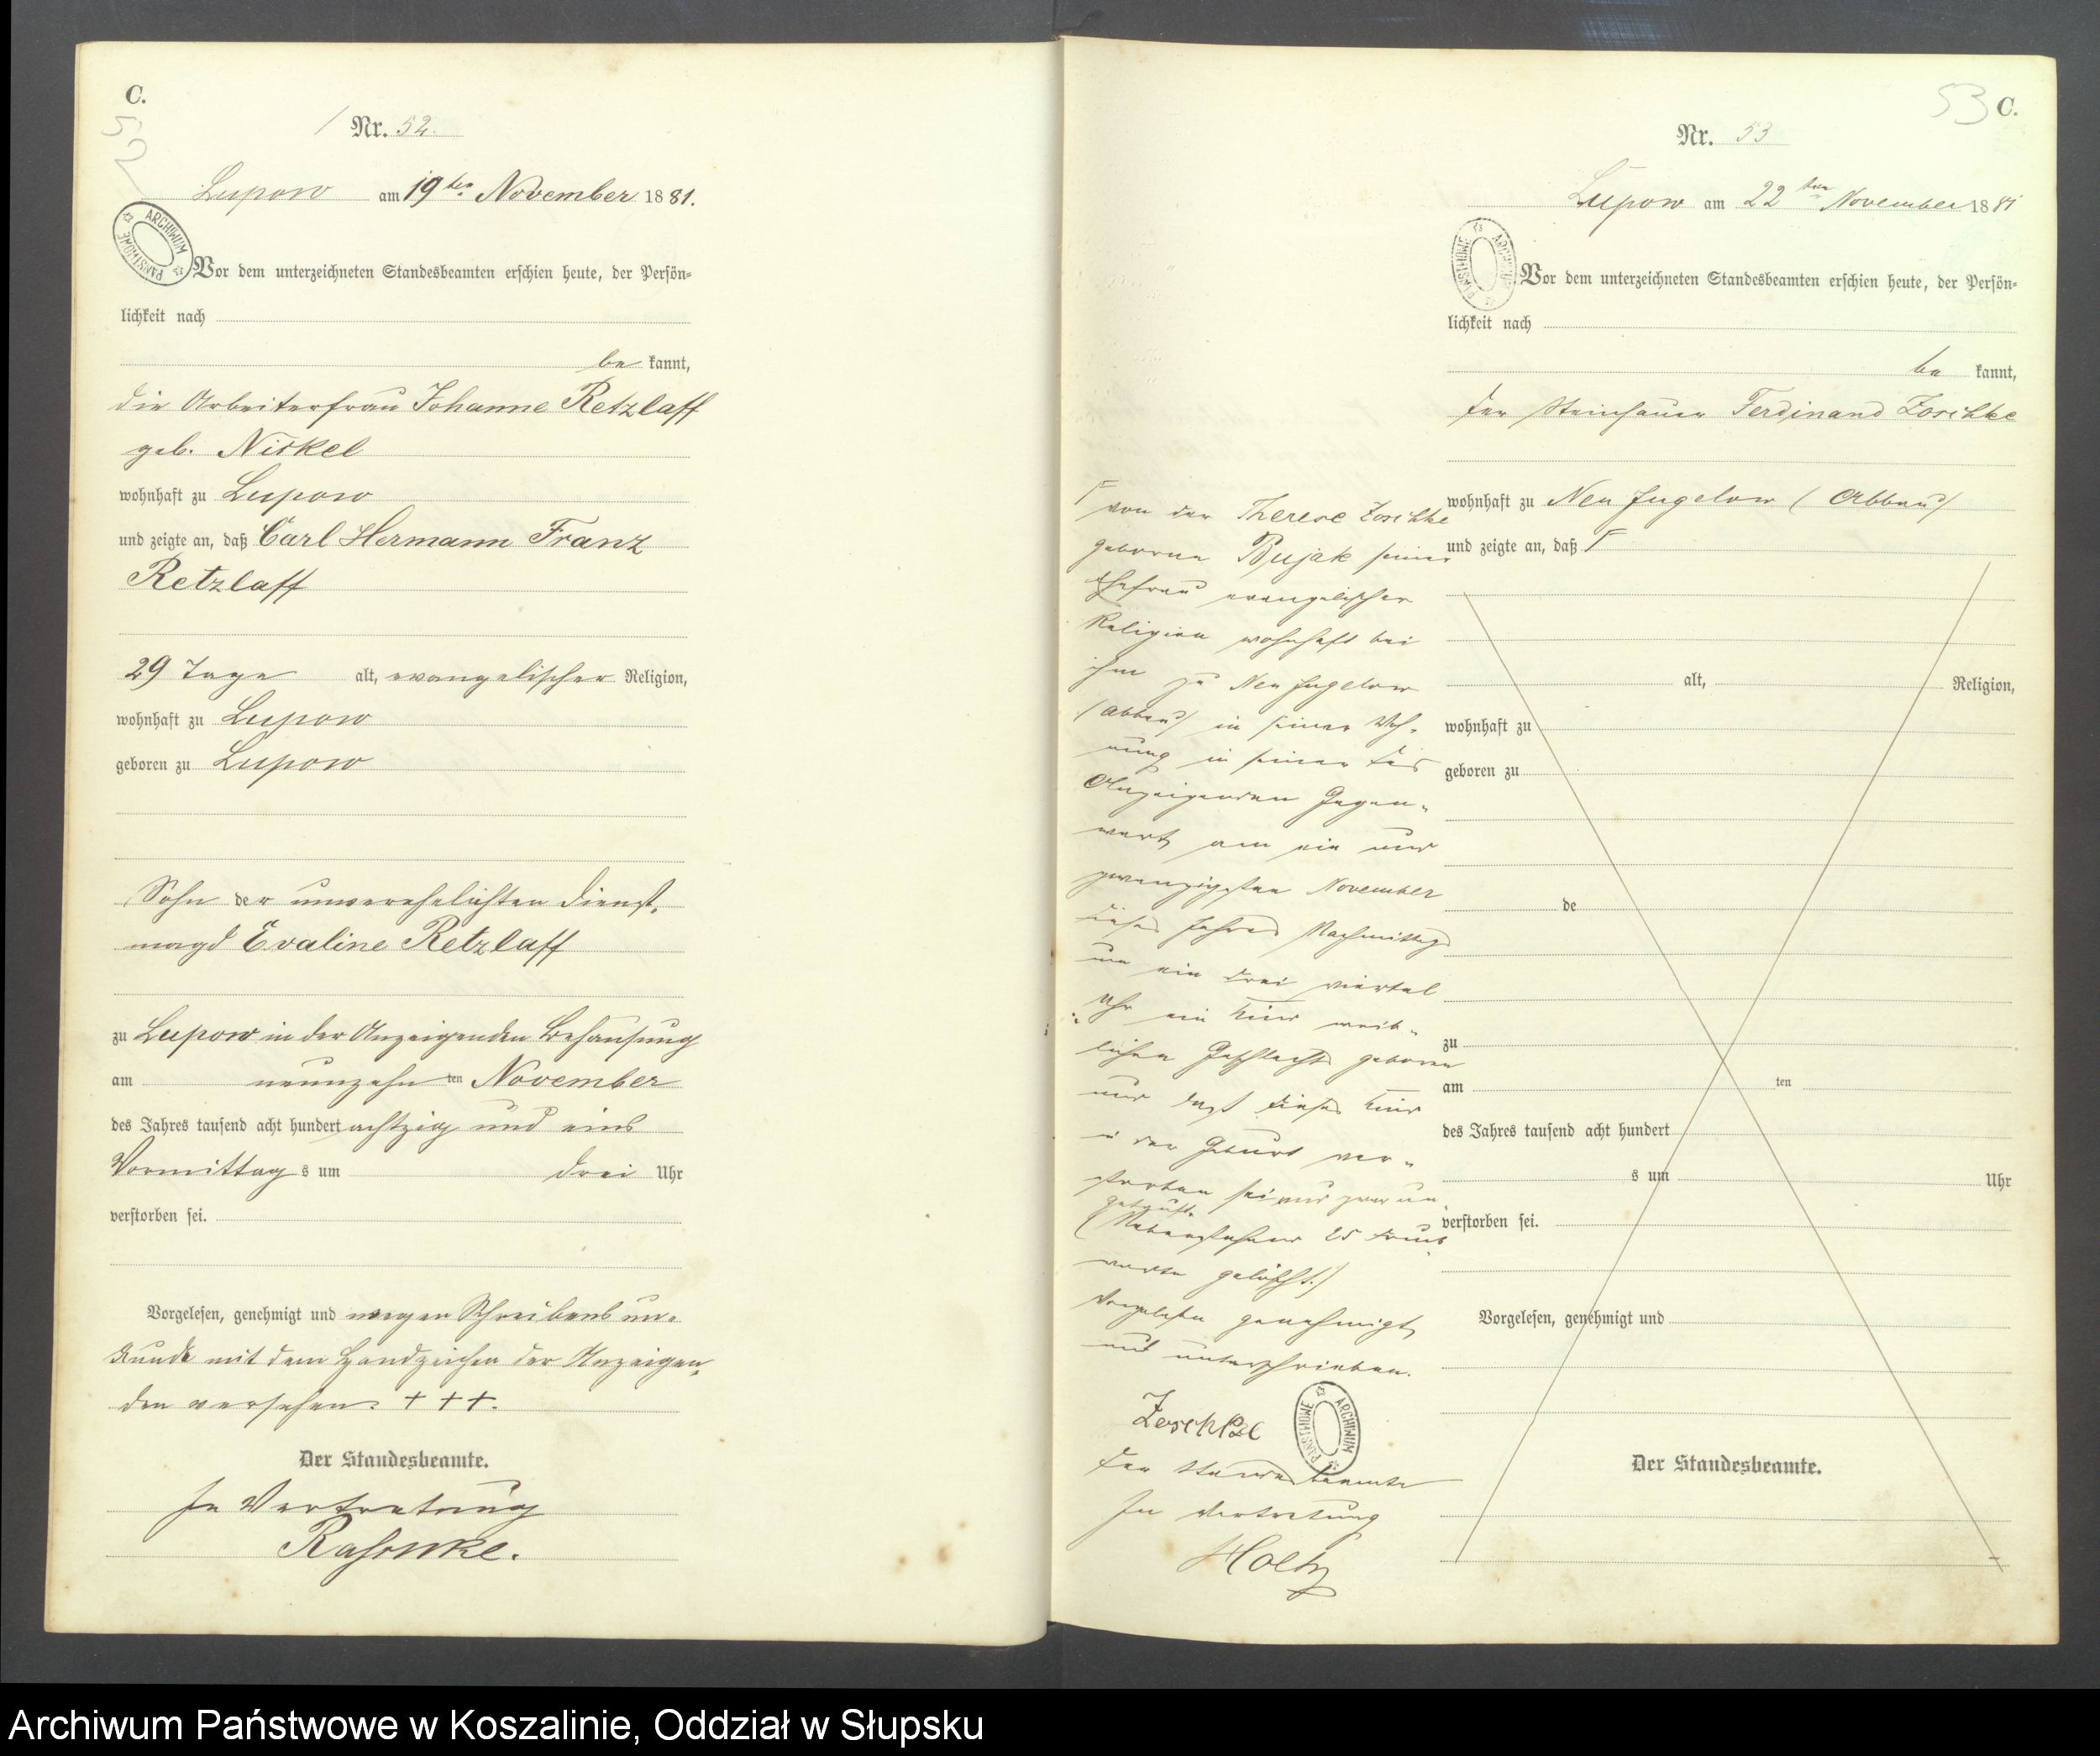 C.
52
Nr. 52.
Lupow am 19ten November 1881.
ARCHIWUM PAŃSTWOWE
Vor dem unterzeichneten Standesbeamten erschien heute, der Persön-
lichkeit nach
be kannt,
die Arbeiterfrau Johanne Retzlaff
geb. Nickel
wohnhaft zu Lupow
und zeigte an, daß Carl Hermann Franz
Retzlaff
29 Tage alt, evangelischer Religion,
wohnhaft zu Lupow
geboren zu Lupow
Sohn der unverehelichten Dienst-
magd Evaline Retzlaff
zu Lupow in der Anzeigenden Behausung
am neunzehn ten November
des Jahres tausend acht hundert achtzig und eins
Vormittag s um drei Uhr
verstorben sei.
Vorgelesen, genehmigt und wegen Schreibensun-
kunde mit dem Handzeichen der Anzeigen-
den versehen. +++.
Der Standesbeamte.
In Vertretung
53 C.
Nr. 53
Lupow am 22ten November 1881
ARCHIWUM PAŃSTWOWE
Vor dem unterzeichneten Standesbeamten erschien heute, der Persön-
lichkeit nach
be kannt,
der Steinhauer Ferdinand Zoschke
wohnhaft zu Neu Jugelow (Abbau)
und zeigte an, daß Γ
alt, Religion,
wohnhaft zu
geboren zu
de
zu
am ten
des Jahres tausend acht hundert
s um Uhr
verstorben sei.
Vorgelesen, genehmigt und
Der Standesbeamte.
Γ von der Therese Zoschke
geborene Bujak seiner
Ehefrau evangelischer
Religion wohnhaft bei
ihm zu Neu Jugelow
(Abbau) in seiner Woh-
nung in seiner des
Anzeigenden Gegen-
wart am ein und
zwanzigsten November
dieses Jahres Nachmittags
um ein drei viertel
Uhr ein Kind weib-
lichen Geschlechts geboren
und daß dieses Kind
in der Geburt ver-
storben sei und zwar un
getauft.
(Nebenstehend 25 Druck
worte gelöscht.)
Vorgelesen genehmigt
und unterschrieben.
Zoschke
ARCHIWUM PAŃSTWOWE
Der Standesbeamte
In Vertretung
Holtz
Archiwum Państwowe w Koszalinie, Oddział w Słupsku